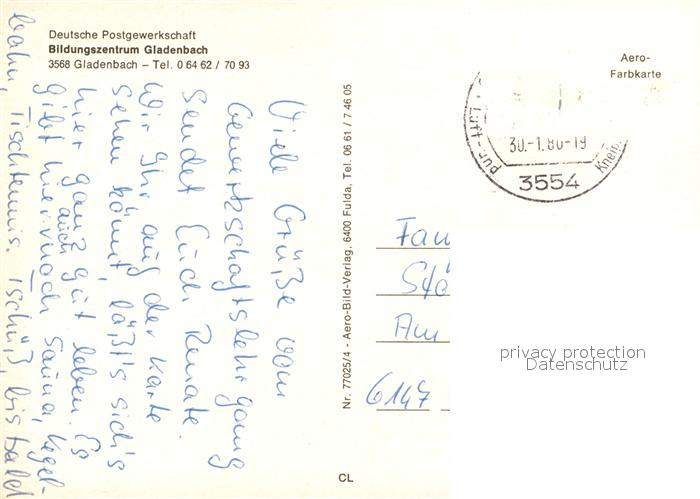 Deutsche Postgewerkschaft
Bildungszentrum Gladenbach
3568 Gladenbach – Tel. 0 64 62 / 70 93
Viele Grüße vom
Gewerkschaftslehrgang
sendet Euch Renate.
Wie Ihr auf der Karte
sehen könnt, läßt's sich's
hier ganz gut leben. Es
gibt hier auch noch Sauna, Kegel-
bahn, Tischtennis. Tschüß, bis bald
Nr. 77025/4 - Aero-Bild-Verlag, 6400 Fulda, Tel. 06 61 / 7 46 05
Aero-
Farbkarte
30.-1.80-19
3554
Luft-
Kneip
Fam
Am
6147
privacy protection
Datenschutz
CL